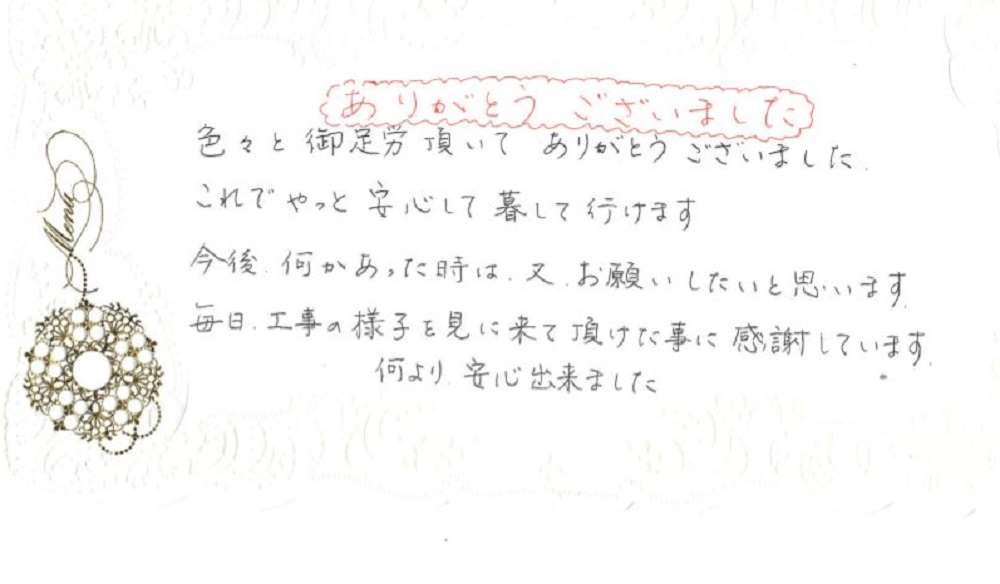 ありがとうございました
色々と御足労頂いて ありがとうございました.
これでやっと安心して暮して行けます
今後.何かあった時は.又.お願いしたいと思います.
毎日.工事の様子を見に来て頂けた事に感謝しています.
何より.安心出来ました
Menu